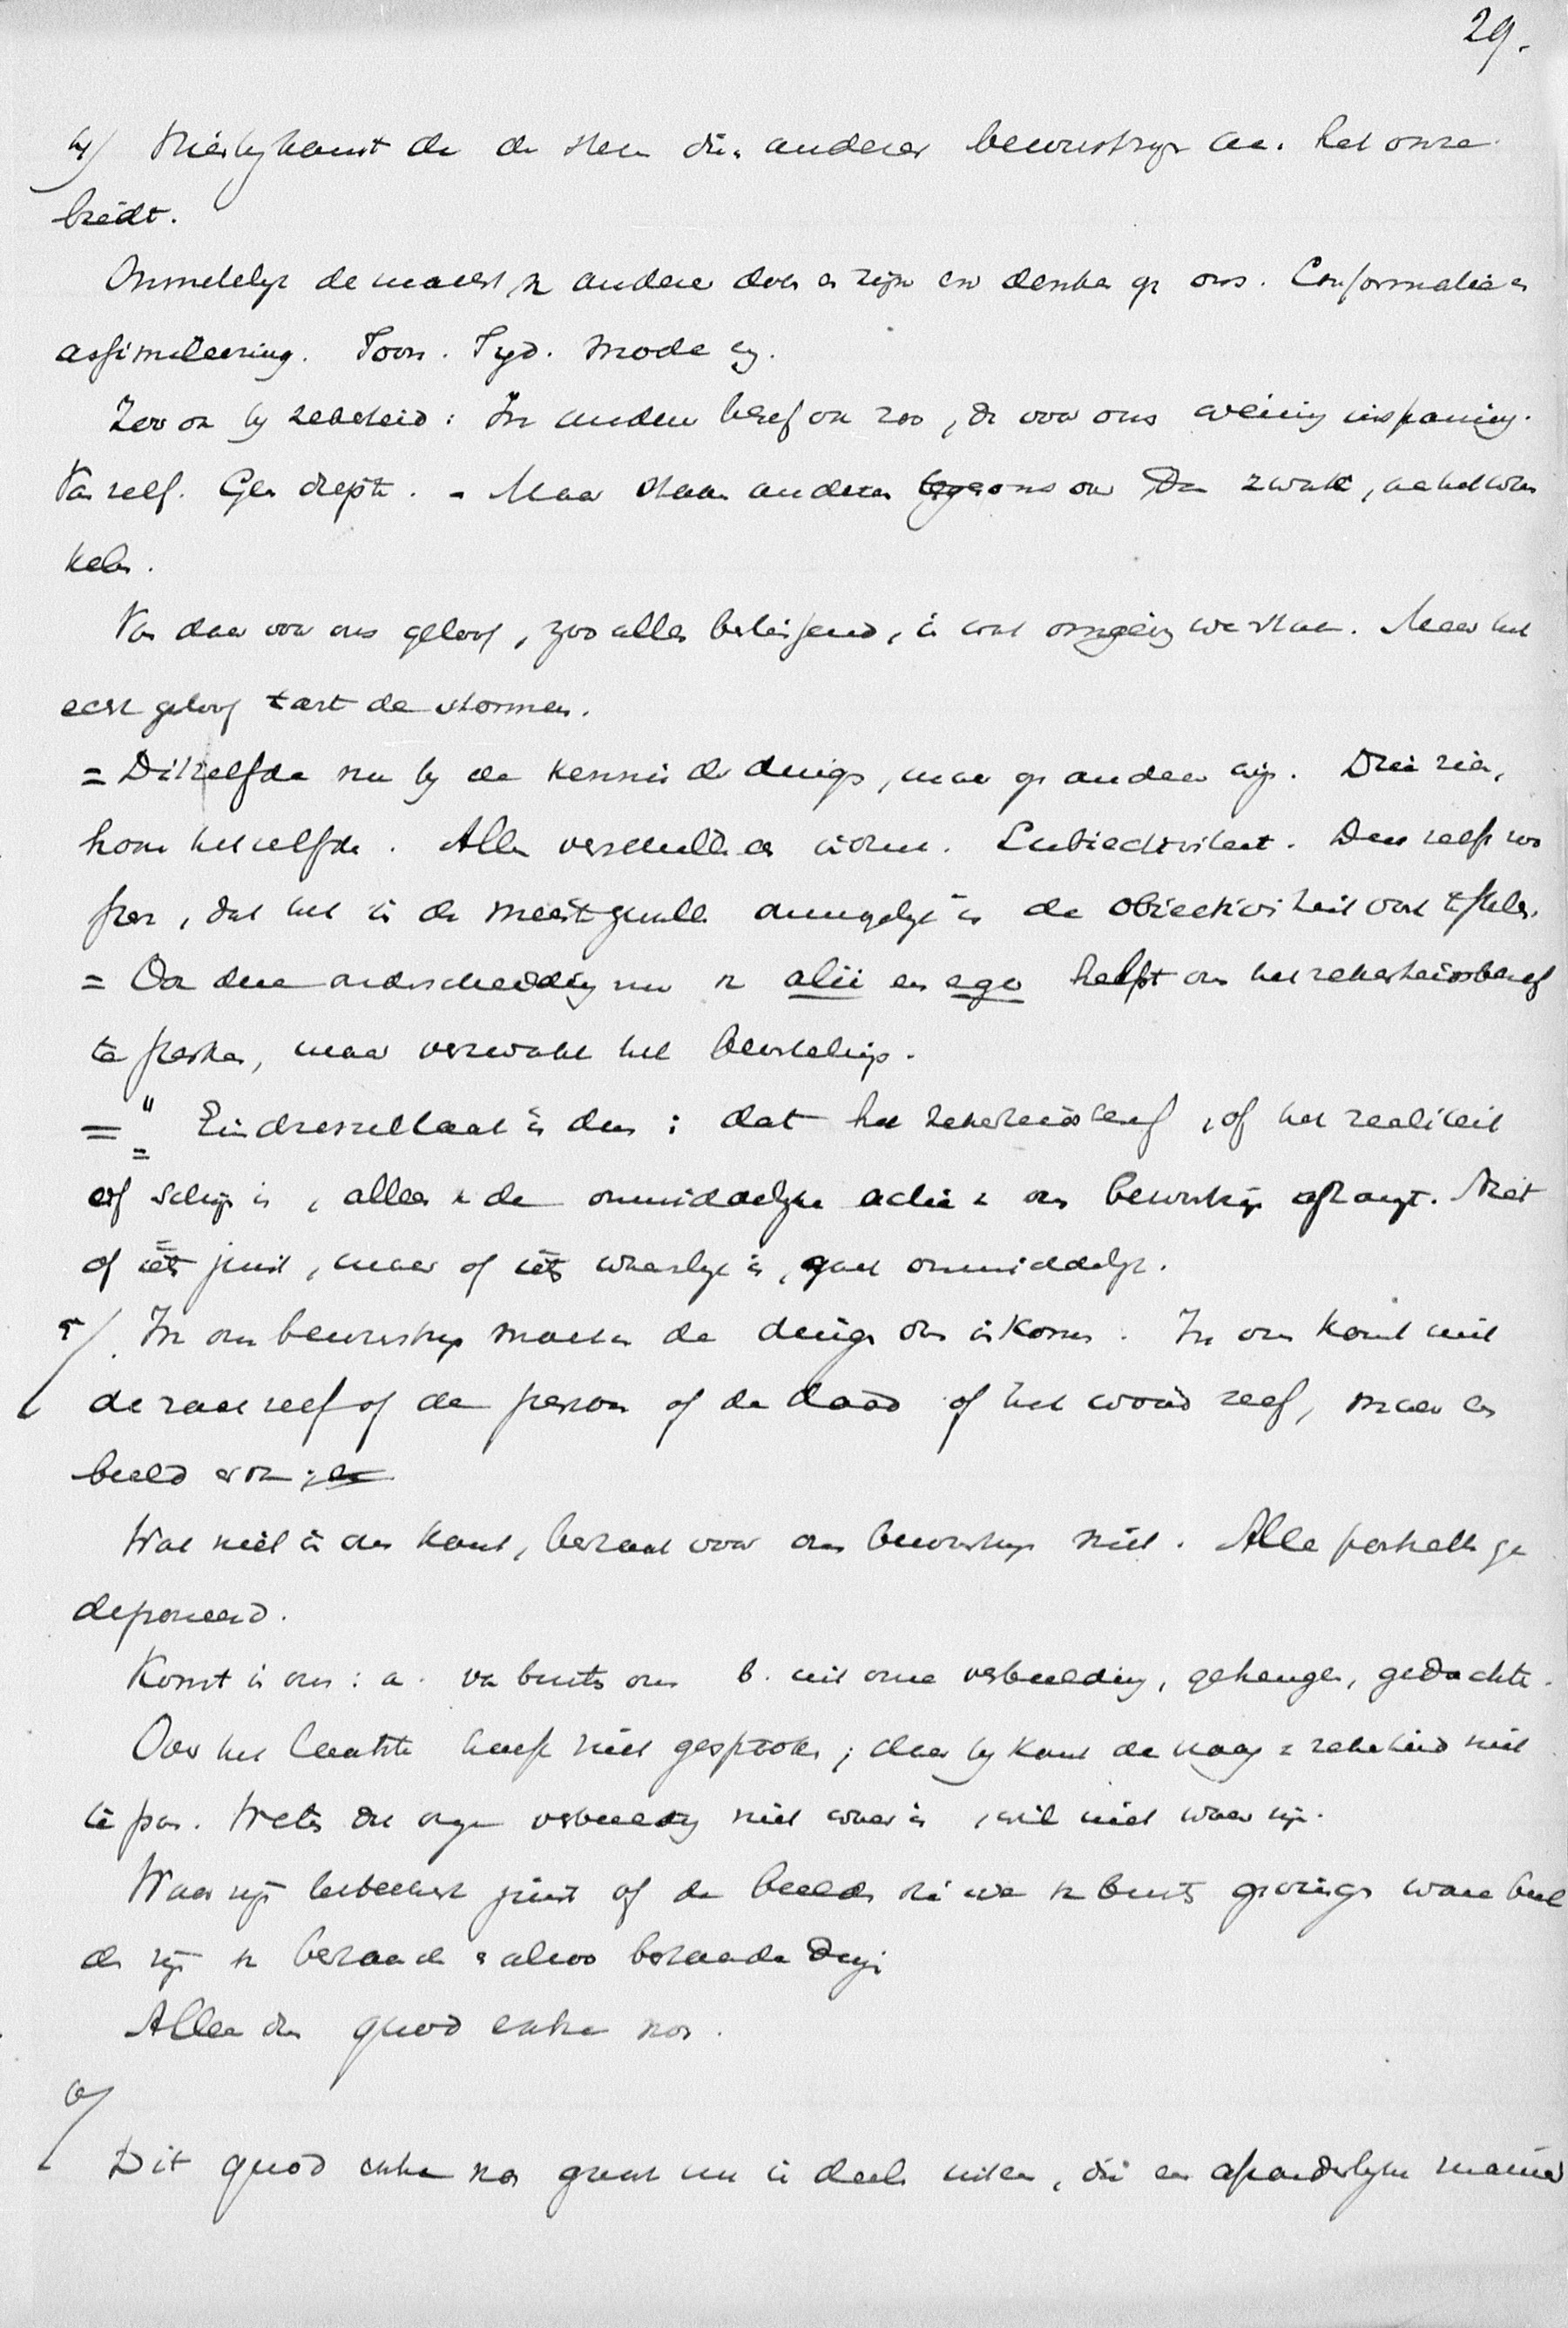 29.
4/ Hierby komt de de steun die anderer bewustzyn aan het onze
biedt.
Onmiddelyk de macht v. anderer doen en zijn en denken op ons. Conformatie en
assimileering. Toon. Tyd. Mode enz.
Zoo ook by zekerheid: In anderen besef ook zoo, dr voor ons weinig inspanning.
Van zelf. Geen diepte. - Maar staan anderen tegen ons over Dan zwak, aan het wan
kelen.
Van daar voor ons geloof, zoo alles beslissend, in wat omgeving we staan. Maar het
echt geloof tart de stormen.
= Ditzelfde nu by de kennis der dingen, maar op andere wijs. Drie zien,
hooren hetzelfde. Allen verschillen er in. Subiectiviteit. Dus zelfs zoo
, dat het in de meeste gevallen onmogelyk is de obiectiviteit vast te stellen.
= Ook deze onderscheiding nu v. alii en ego helpt ons het zekerheidsbesef
te sterken, maar verzwakt het
= " Eindresultaat is dus: dat het zekerheidsbesef, of het realiteit
of schijn is, alleen v. de onmiddelyke actie v. ons bewustzijn afhangt. Niet
of iets juist, maar of iets waarlyk is, gaat onmiddelyk.
5/. In ons bewustzyn moeten de dingen ons inkomen. In ons komt niet
de zaak zelf of de persoon of de daad of het woord zelf, maar een
beeld er van;
Wat niet in ons komt, bestaat voor ons bewustzyn niet. Alle
deponeerd.
Komt in ons: a. van buiten ons b. uit onze verbeelding, geheugen, gedachte.
Over het laatste hoeft niet gesproken; daar by komt de vraag v. zekerheid niet
te pas. Weten dat onze verbeelding niet waar is, wil niet waar zijn.
Waar zijn beteekent juist of de beelden die we v. buiten ontvingen ware beel
den zijn v. bestaande en alzoo bestaande dingen
Alleen dus quod extra nos.
6/
Dit quod extra nos gaat nu in deelen uiteen, die een afzonderlyke manier